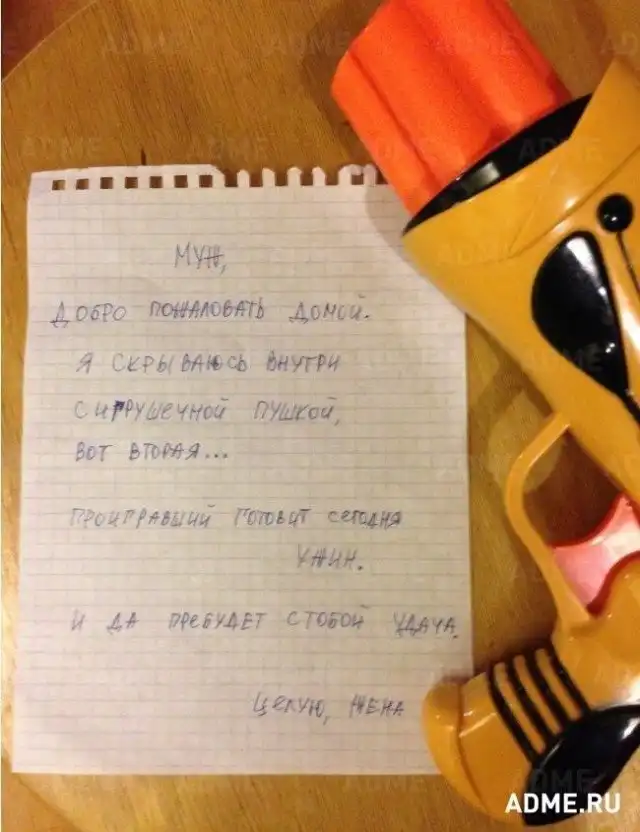 МУЖ,
ДОБРО ПОЖАЛОВАТЬ ДОМОЙ.
Я СКРЫВАЮСЬ ВНУТРИ
С ИГРУШЕЧНОЙ ПУШКОЙ,
ВОТ ВТОРАЯ...
ПРОИГРАВШИЙ ГОТОВИТ СЕГОДНЯ
УЖИН.
И ДА ПРЕБУДЕТ С ТОБОЙ УДАЧА.
ЦЕЛУЮ, ЖЕНА
ADME.RU